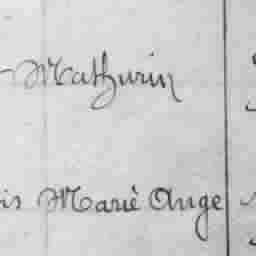 Mathurin
is Marie Ange